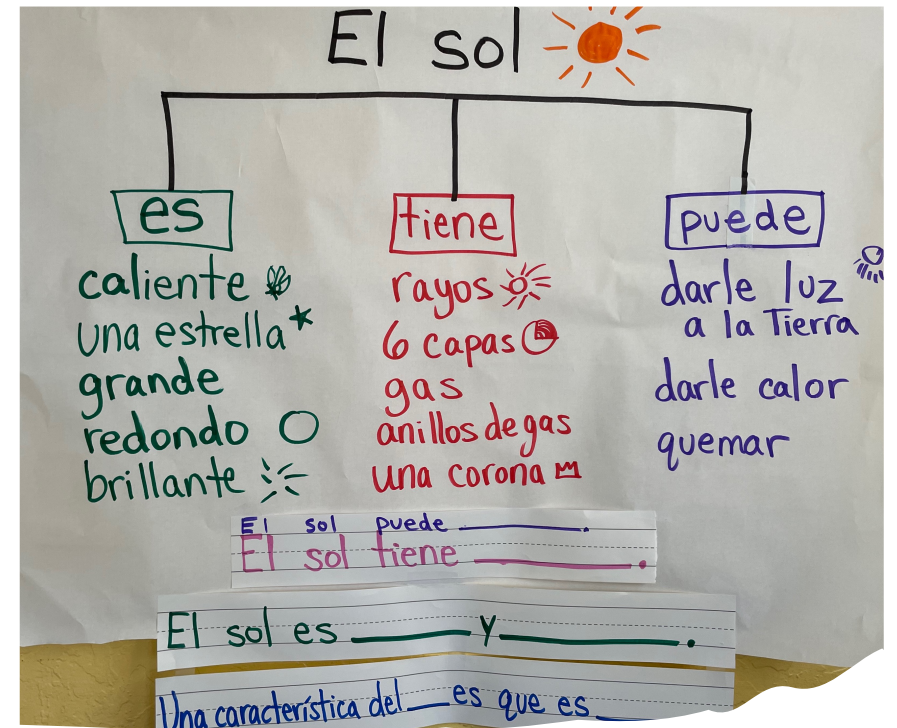 El sol
es
caliente
una estrella
grande
redondo
brillante
tiene
rayos
6 capas
gas
anillos de gas
una corona
puede
darle luz
a la Tierra
darle calor
quemar
El sol puede ________.
El sol tiene ________.
El sol es ________ y ________.
Una característica del ___ es que es ___